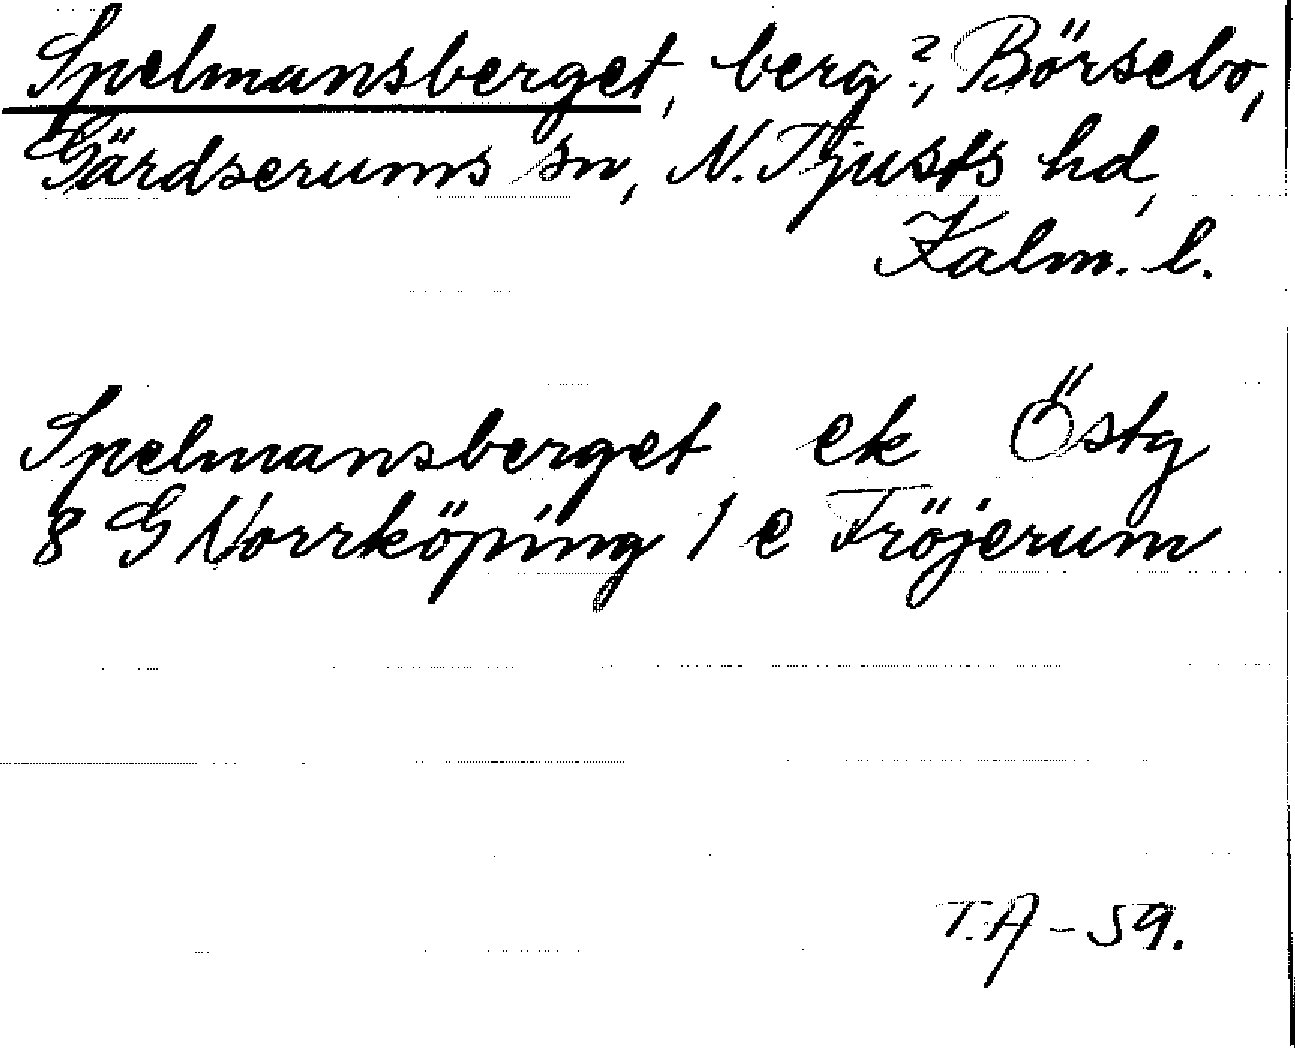 Spelmansberget, berg?, Börsebo,
Gärdserums sn, N. Tjusts hd,
Kalm. l.
Spelmansberget ek Östg
8 G Norrköping 1 e Fröjerum
T.A - 59.